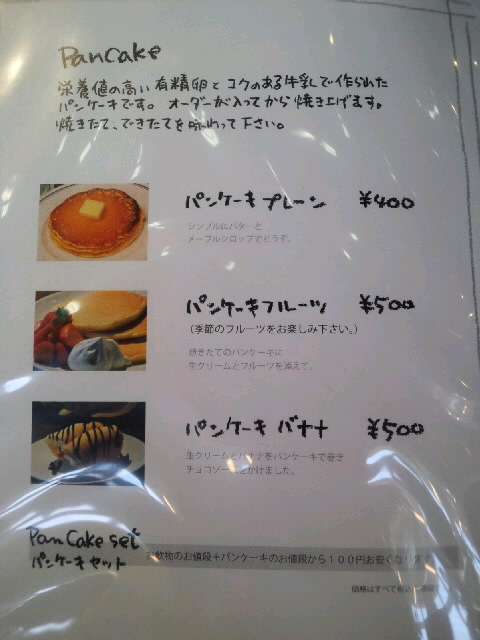 Pancake
栄養値の高い有精卵とコクのある牛乳で作られた
パンケーキです。オーダーが入ってから焼き上げます。
焼きたて、できたてを味わって下さい。
パンケーキプレーン ¥400
シンプルにバターと
メープルシロップでどうぞ。
パンケーキフルーツ ¥500
(季節のフルーツをお楽しみ下さい。)
焼きたてのパンケーキに
生クリームとフルーツを添えて。
パンケーキ バナナ ¥500
生クリームとバナナをパンケーキで巻き
チョコソースをかけました。
Pan Cake set
パンケーキセット
お飲物のお値段+パンケーキのお値段から100円お安くなります
価格はすべて